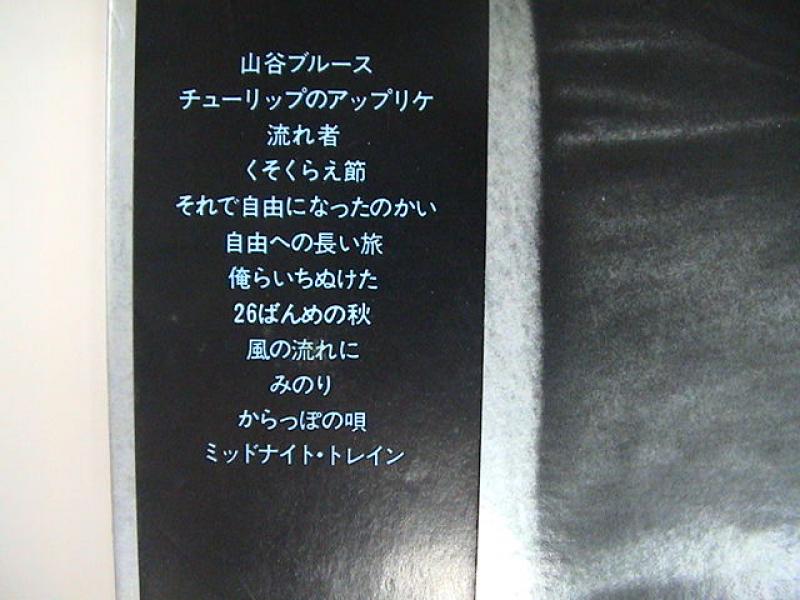 山谷ブルース
チューリップのアップリケ
流れ者
くそくらえ節
それで自由になったのかい
自由への長い旅
俺らいちぬけた
26ばんめの秋
風の流れに
みのり
からっぽの唄
ミッドナイト・トレイン